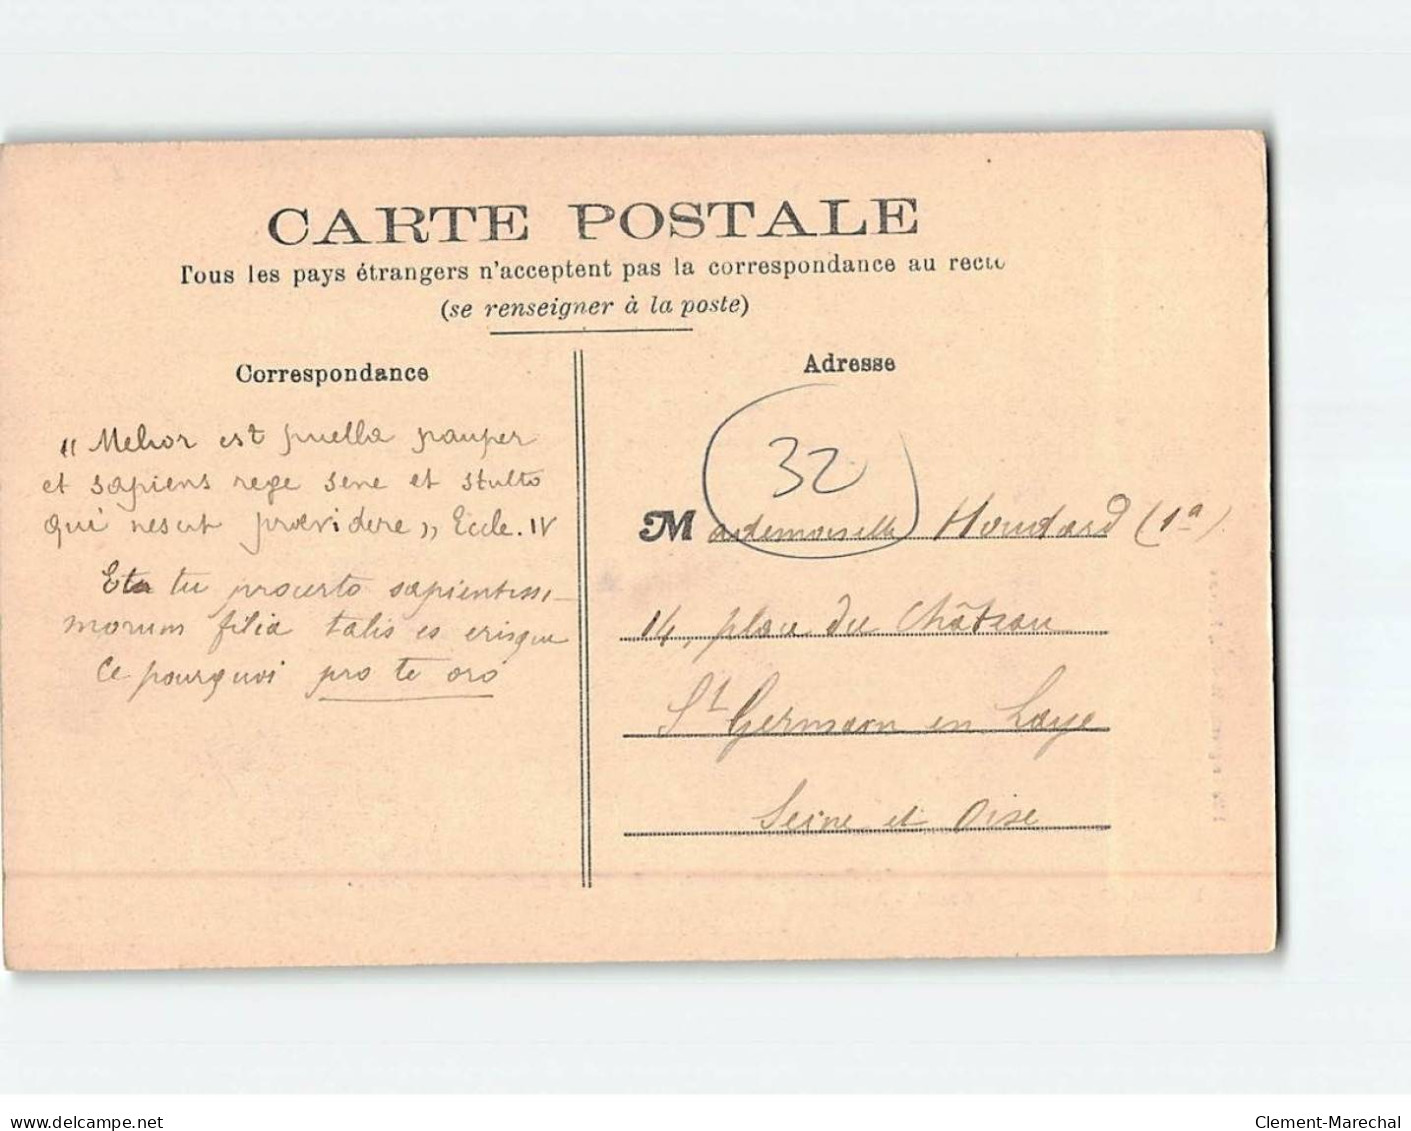 CARTE POSTALE
Tous les pays étrangers n'acceptent pas la correspondance au recto
(se renseigner à la poste)
Correspondance
" Melior est puella pauper
et sapiens rege sene et stulto
qui nescit praevidere " Eccle. IV
Et tu procerto sapientissi-
morum filia talis es erisque
Ce pourquoi pro te oro
Adresse
32
Mademoiselle Houdard (1a)
14, place du Château
St Germain en Laye
Seine et Oise
www.delcampe.net
Clement-Marechal